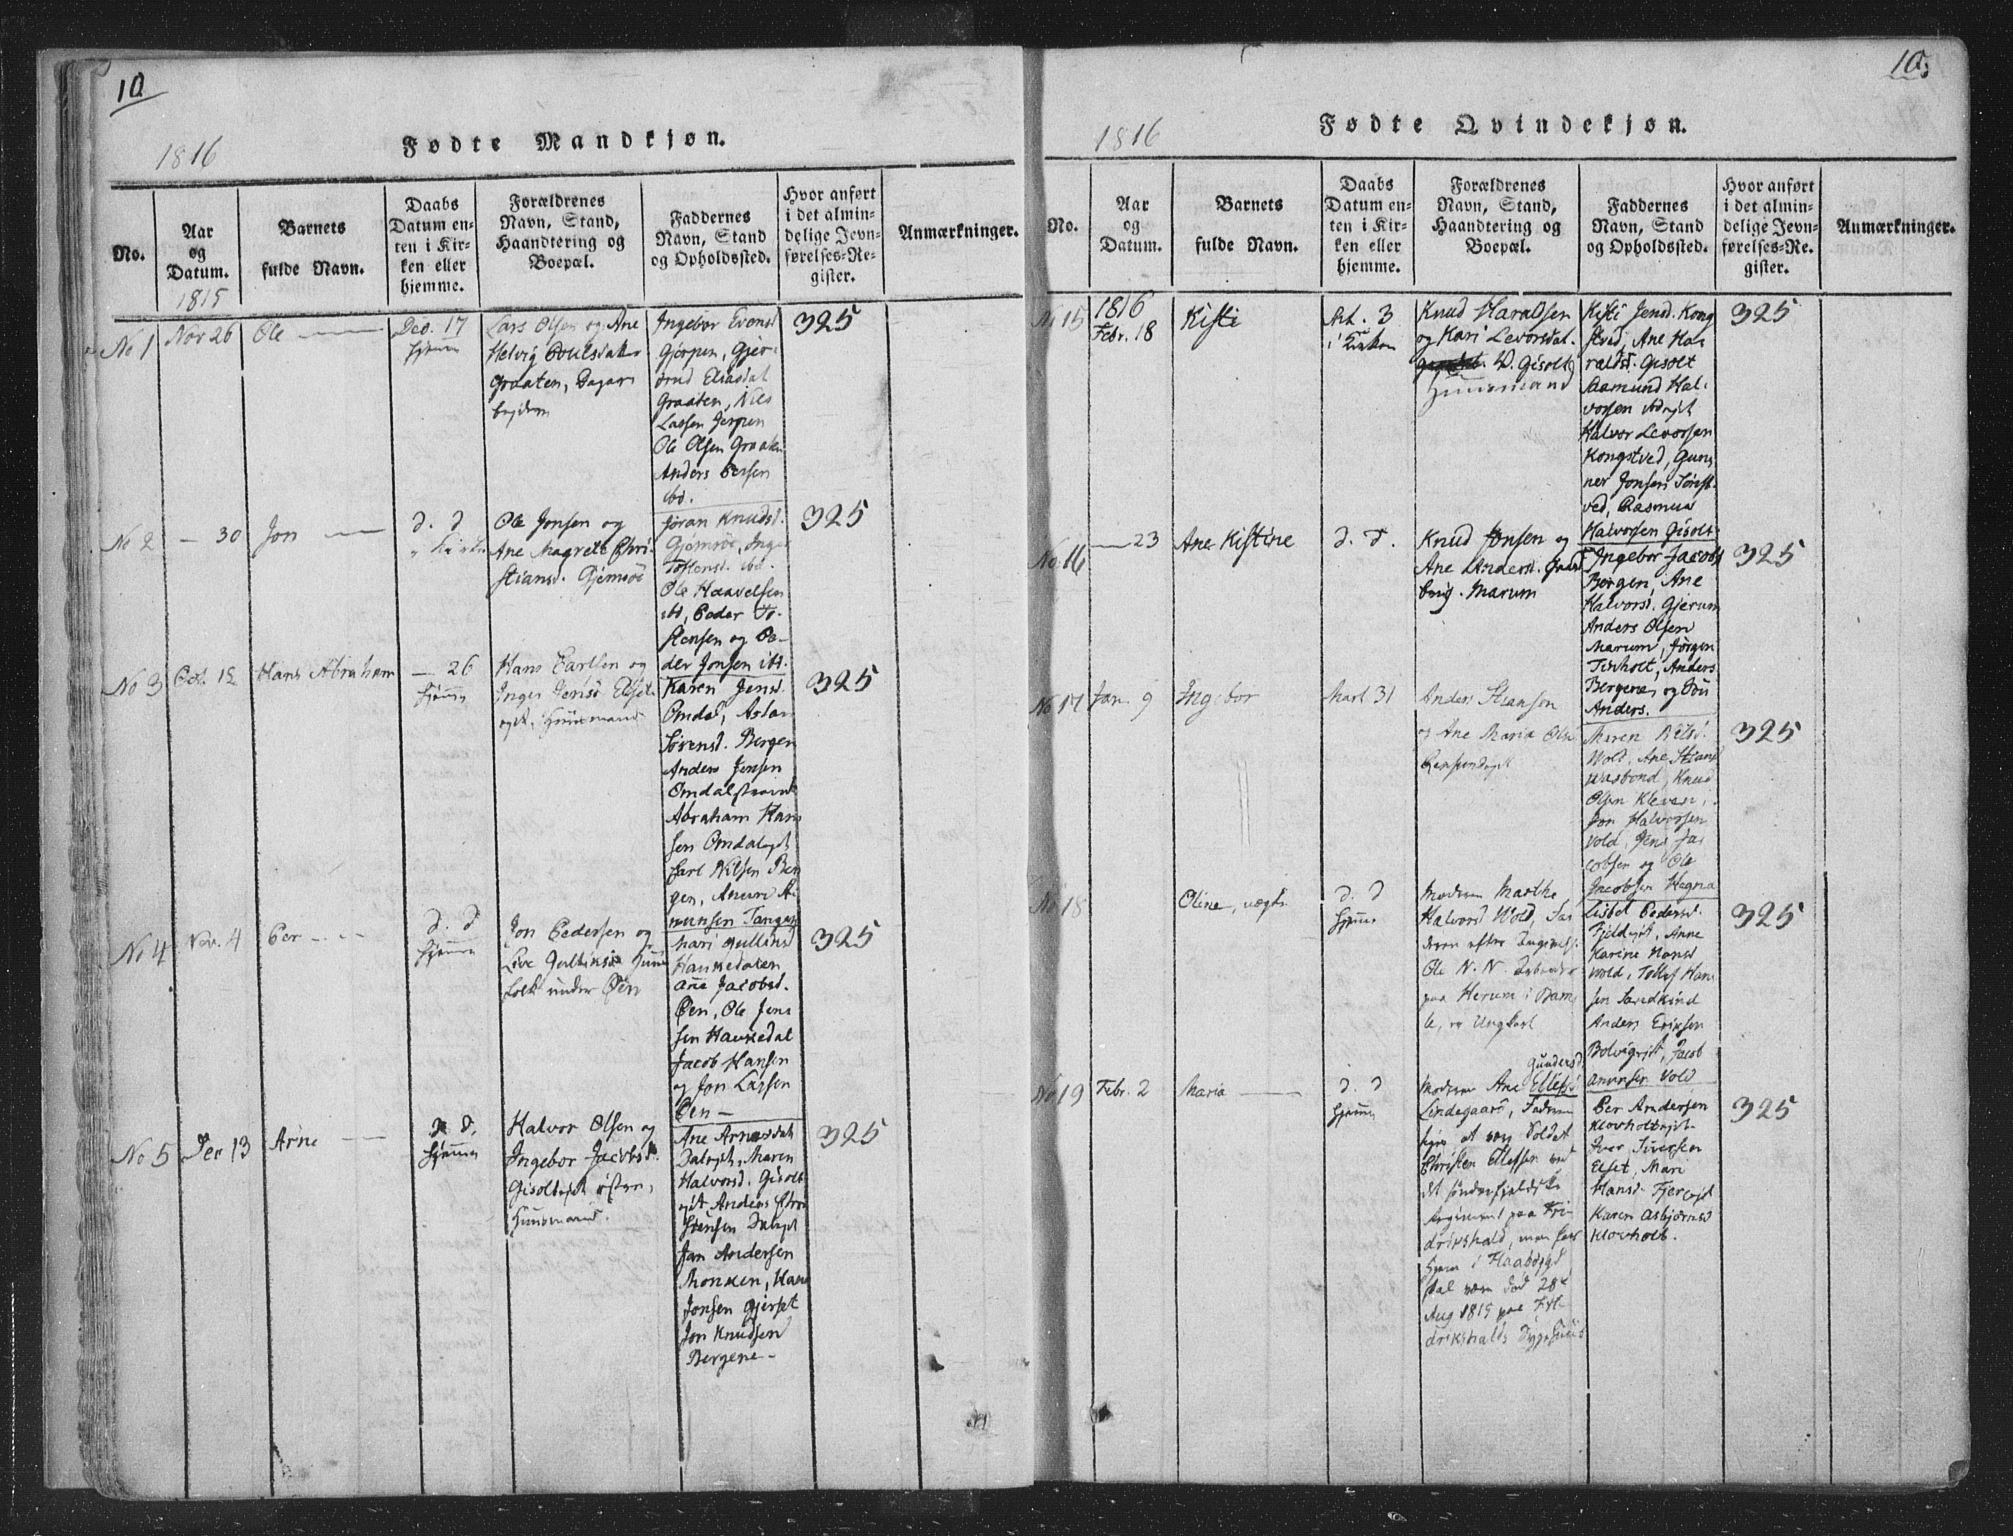 10
1816
Fødte Mandkjøn.
No.
Aar
og
Datum.
Barnets
fulde Navn.
Daabs
Datum en-
ten i Kir-
ken eller
hjemme.
Forældrenes
Navn, Stand,
Haandtering og
Boepæl.
Faddernes
Navn, Stand
og Opholdssted.
Hvor anført
i det almin-
delige Jevn-
førelses-Re-
gister.
Anmærkninger.
1815
No 1
Nov 26
Ole
Dec. 17
hjemme
Lars Olsen og Ane
Helvig Poulsdat.
Graaten, Dagar
bejdere
Ingebor Evensd
Gjerpen, Gjer-
trud Eliasdat
Graaten, Nils
Lassen Jerpen
Ole Olsen Graaten
Anders Persen
ibd.
325
No 2
- 30
Jon
d. d
i Kirken
Ole Jonsen og
Ane Magrete Chri-
stiansd. Gjemsöe
Jøran Knudsd.
Gjemsöe, Inger
Tostensd. ibd.
Ole Haavelsen
ibd, Peder To-
stensen og Pe-
der Jonsen ibd.
325
No 3
Oct. 12
Hans Abraham
- 26
hjemme
Hans Carlsen og
Inger Jensd Elset-
ejet. Huusmand
Karen Jensd.
Omdal, Aslau
Sørensd. Bergen
Anders Jensen
Omdalstrand
Abraham Han
sen Omdalejet
Carl Nilsen Ber
gen, Anund A-
nunsen Tangen
325
No 4
Nov. 4
Per
d. d
hjemme
Jon Pedersen og
Live Gulliksd Huus
folk under Öen
Mari Gulliksd
Haukedalen
Ane Jacobsd.
Öen, Ole Jen
sen Haukedal
Jacob Hansen
og Jon Larsen
Öen -
325
No 5
Dec 13
Arne
d. d.
hjemme
Halvor Olsen og
Ingebor Jacobsd.
Gisoltejet østen,
Huusmand.
Ane Arnesdat
Dalejet, Maren
Halvorsd. Gisolt
ejet Anders Chri
stensen Dalejet
Jan Andersen
Monken, Hans
Jonsen Gjerset
Jon Knudsen
Bergene -
325
10.
1816
Fødte Qvindekjøn.
No.
Aar
og
Datum.
Barnets
fulde Navn.
Daabs
Datum en-
ten i Kir-
ken eller
hjemme.
Forældrenes
Navn, Stand,
Haandtering og
Boepæl.
Faddernes
Navn, Stand
og Opholdssted.
Hvor anført
i det almin-
delige Jevn-
førelses-Re-
gister.
Anmærkninger.
No 15
1816
Febr. 18
Kisti
Mrt. 3
i Kirken
Knud Haraldsen
og Kari Levorsdat.
W. Gisolt
Huusmand
Kisti Jensd. Kong
stved, Ane Ha-
raldsd. Gisolt
Aamund Hal-
vorsen
Halvor Levorsen
Kongstved, Gun-
ner Jonsen Tørst-
ved, Rasmus
Halvorsen Gisolt
325
No 16
- 23
Ane Kistine
d. d.
Knud Jonsen og
Ane Andersd. Gaard
brug. Marum
Ingebor Jacobsd
Bergen, Ane
Halvorsd. Gjerum
Anders Olsen
Marum, Jørgen
Tinholt, Anders
Bergene, og Jon
Anders.
325
No 17
Jan. 9
Ingebor
Mart 31
Anders Stiansen
og Ane Maria Olsd
Maren Nilsd.
Wold, Ane Stiansd
Knud
Olsen Kleven,
Jon Halvorsen
Vold, Jens Ja-
cobsen og Ole
Jacobsen Hegna
325
No 18
Oline, uægte
d. d
hjemme
Modren Marthe
Halvorsd Wold, Fa-
deren efter Angivelse
Ole N. N.
paa Herum i Bam-
le, og Ungkarl
Lisbet Pedersd.
Fjeldejet, Anne
Karine Hansd
Wold, Tollef Han
sen Sandkind
Anders Eriksen
Bolvigejet, Jacob
Anunsen Vold
325
No 19
Febr. 2
Maria
d. d
hjemme
Gundersd
Modren Ane Ellefsd
Lindegaard, Fadren
siges at være Soldat
Christen Ellefsen ved
det søndenfjeldske
Regiment paa Fri-
drikshald, men som
hjem i
skal være død 28
Aug 1815 paa Fri-
drikshalds Sygehuus
Per Andersen
Klovholtejet
Iver Iversen
Elset, Mari
Hansd. Fjerejet
Karen Asbjørnsd
Klovholt.
325